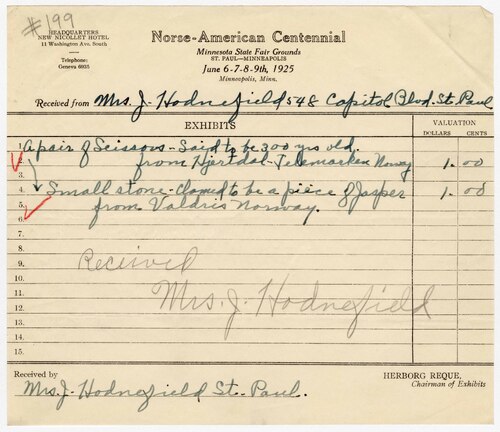 #199
HEADQUARTERS
NEW NICOLLET HOTEL
11 Washington Ave. South
Telephone:
Geneva 6835
Norse-American Centennial
Minnesota State Fair Grounds
ST. PAUL—MINNEAPOLIS
June 6-7-8-9th, 1925
Minneapolis, Minn.
Received from Mrs. J. Hodnefield 548 Capitol Blvd. St. Paul
EXHIBITS
VALUATION
DOLLARS CENTS
1. A pair of Scissors - Said to be 300 yrs old.
2. from Hjertdal - Telemarken Norway 1. 00
3.
4. Small stone - claimed to be a piece of Jasper 1. 00
5. from Valdris Norway.
6.
7.
8.
9. Received
10.
11. Mrs. J. Hodnefield
12.
13.
14.
15.
Received by
Mrs. J. Hodnefield St. Paul.
HERBORG REQUE,
Chairman of Exhibits